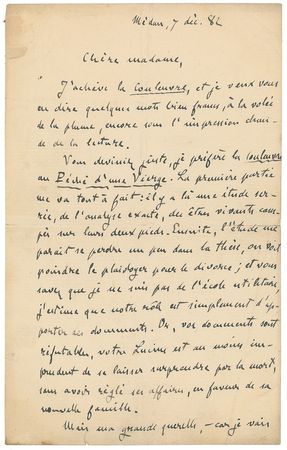 Médan, 7 déc. 82
Chère madame,
J'achève la couleuvre, et je veux vous
en dire quelques mots bien francs, à la volée
de la plume, encore sous l'impression chau-
de de la lecture.
Vous devinez juste, je préfère la couleuvre
au Péché d'une Vierge. La première partie
me va tout à fait : il y a là une étude ser-
rée, de l'analyse exacte, des êtres vivants cam-
pés sur leurs deux pieds. Ensuite, l'étude me
paraît se perdre un peu dans la thèse, on voit
poindre le plaidoyer pour le divorce ; et vous
savez que je ne suis pas de l'école utilitaire,
j'estime que notre rôle est simplement d'ap-
porter des documents. Or, vos documents sont
réfutables, votre Lucien est au moins im-
prudent de se laisser surprendre par la mort,
sans avoir réglé ses affaires, en faveur de sa
nouvelle famille.
Mais ma grande querelle, – car je vais